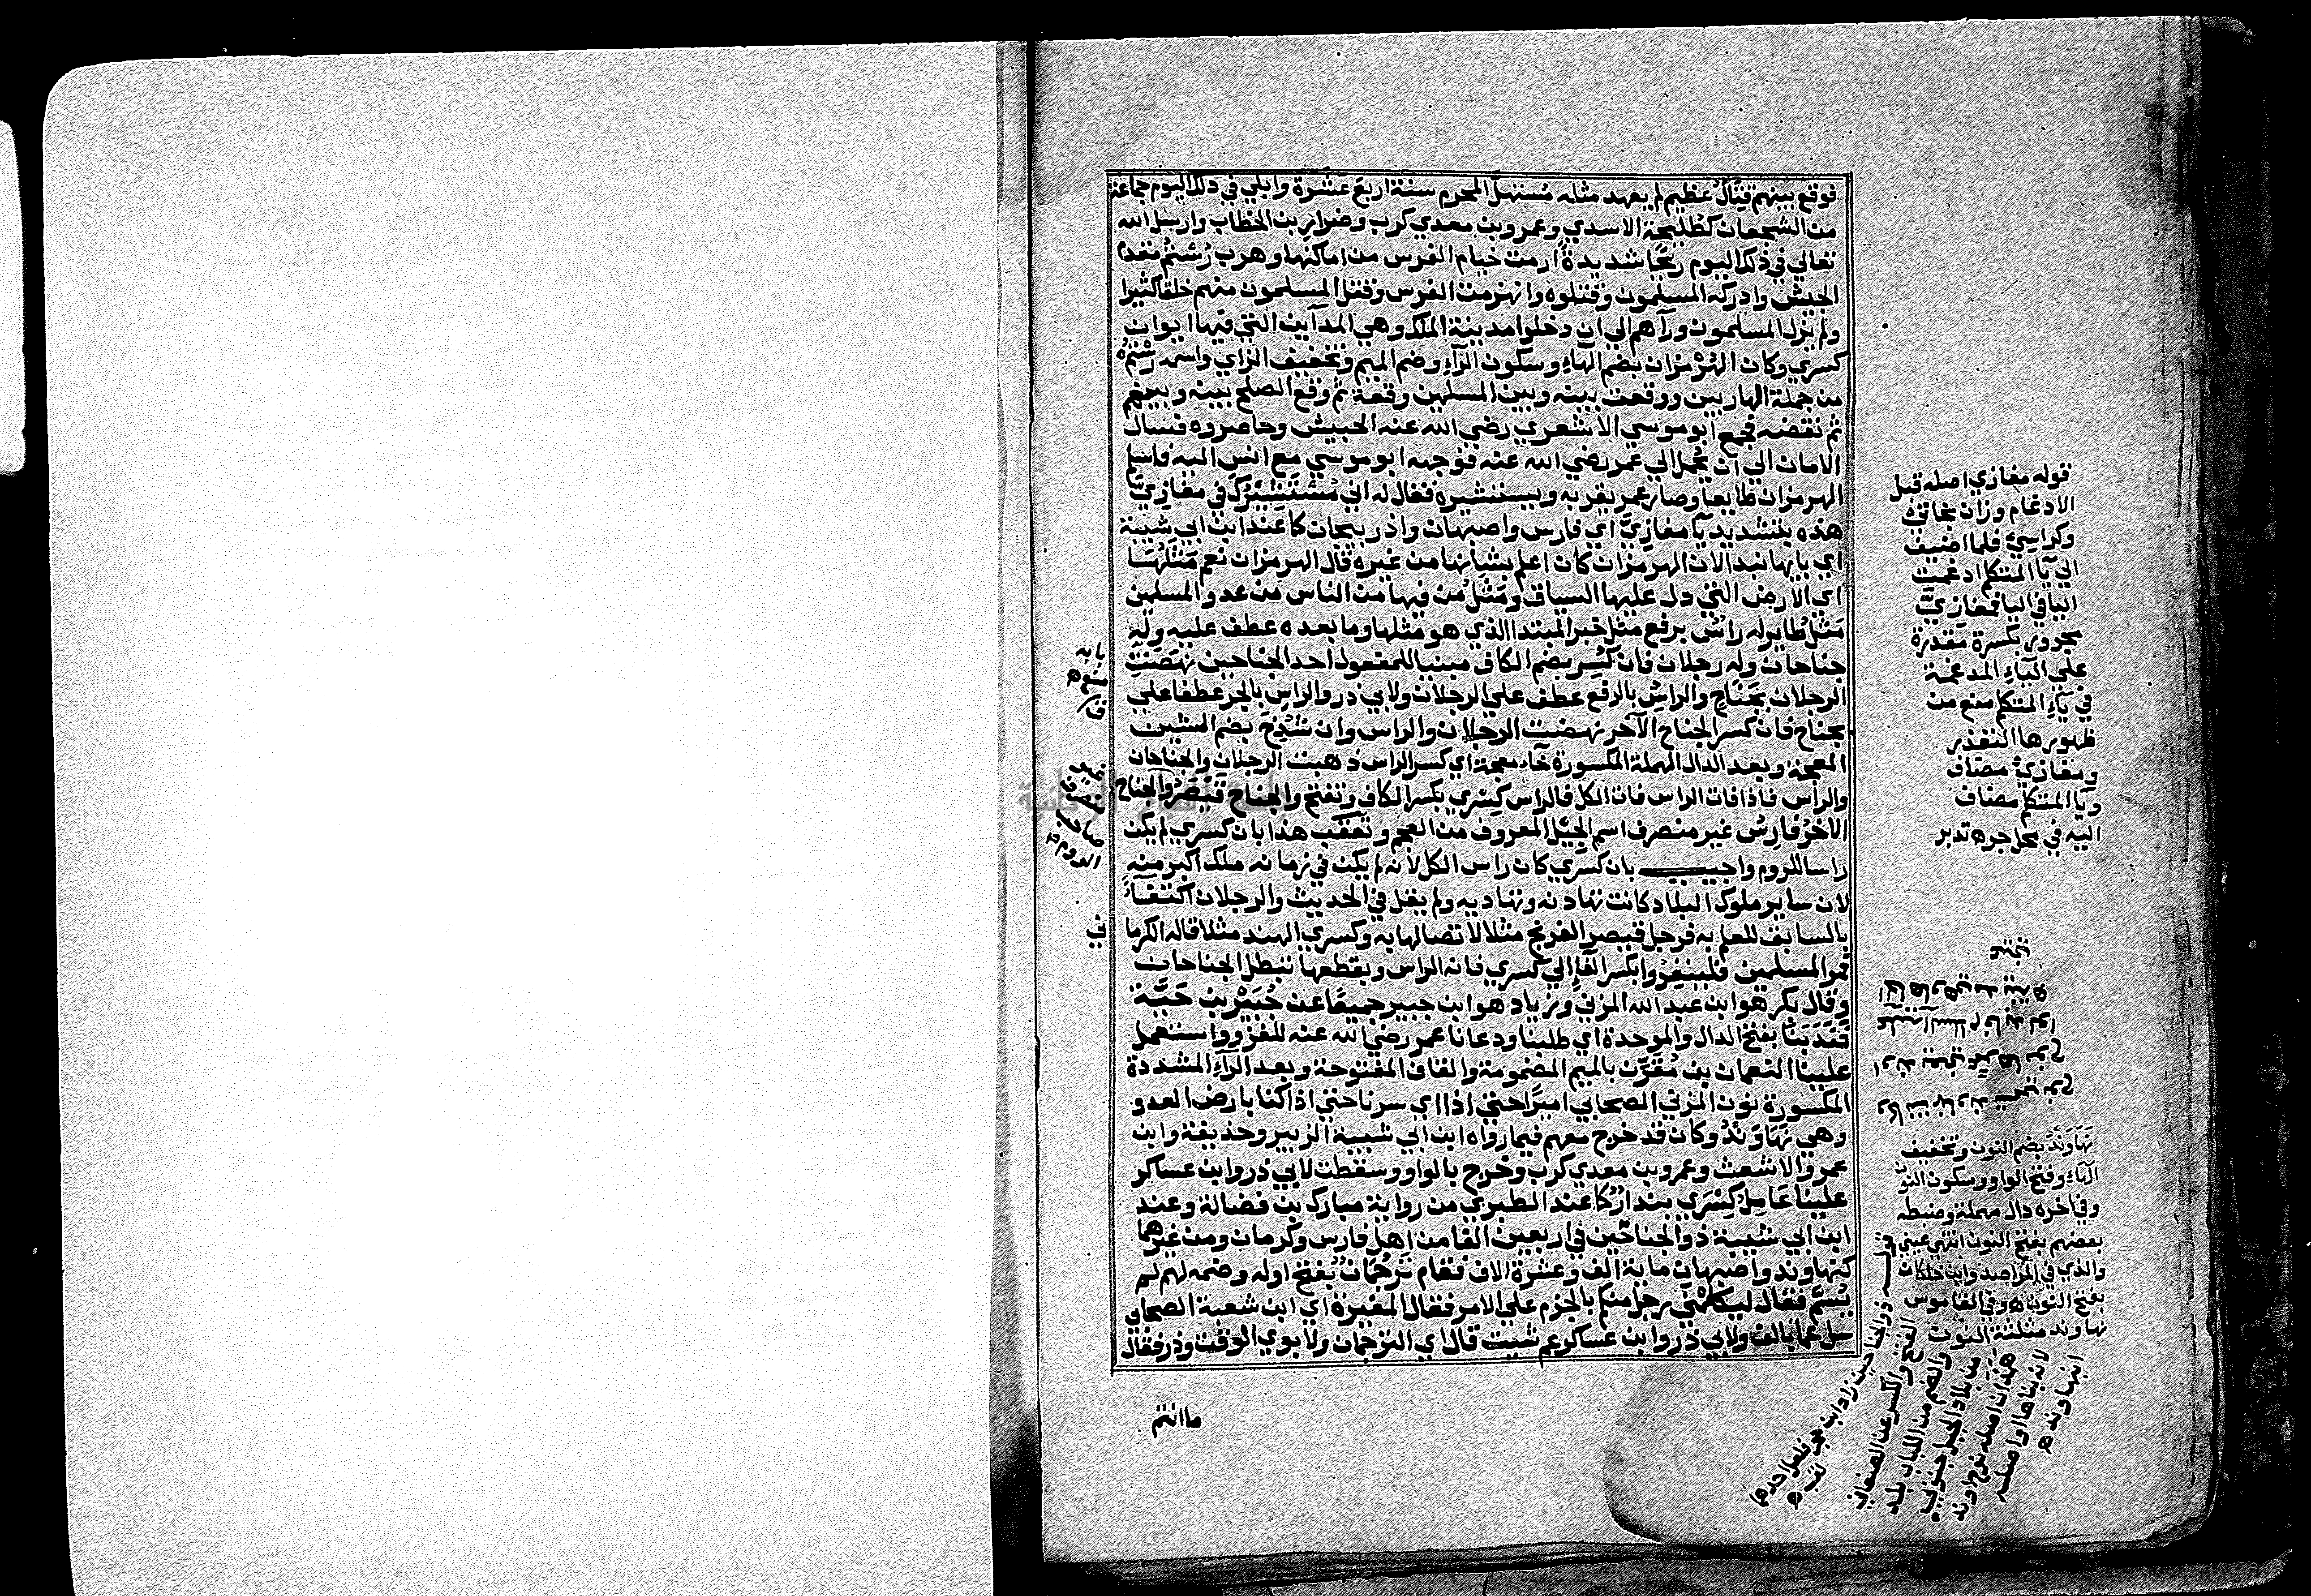 فوقع بينهم قتال عظيم لم يعهد مثله مستهل المحرم سنة اربع عشرة وابلي في ذلك اليوم جماعة
من الشجعان كطليحة الاسدي وعمرو بن معدي كرب وضرار بن الخطاب وارسل الله
تعالي في ذلك اليوم ريحا شديدة ارمت خيام الفرس من اماكنها وهرب رستم مقدم
الجيش وادركه المسلمون وقتلوه وانهزمت الفرس وقتل المسلمون منهم خلقا كثيرا
ولم يزل المسلمون ورآهم الي ان دخلوا مدينة الملك وهي المدآين التي فيها ايوان
كسري وكان الهُرْمزان بضم الهاء وسكون الرآء وضم الميم وتخفيف الزاي واسمه رستم
من جملة الهاربين ووقعت بينه وبين المسلمين وقعة ثم وقع الصلح بينه وبينهم
ثم نقضه فجمع ابو موسي الاشعري رضي الله عنه الجيش وحاصروه فسال
الامان الي ان يُحمل الي عمر رضي الله عنه فوجهه ابو موسي مع انس اليه فاسلم
الهرمزان طايعا وصار عمر يقربه ويستشيره فقال له اني مُسْتَشيرُك في مغازِيَّ
هذه بتشديد يآ مغازِيَّ اي فارس واصبهان واذربيجان كما عند ابن ابي شيبة
اي بايها نبدا لان الهرمزان كان اعلم بشانها من غيره قال الهرمزان نعم مَثَلُهَا
اي الارض التي دل عليها السياق ومَثَلُ مَن فيها من الناس من عدو المسلمين
مَثَلُ طاير له راسٌ برفع مثل خبر المبتدا الذي هو مثلها وما بعده عطف عليه وله
جناحان وله رجلان فان كُسِر بضم الكاف مبنيا للمفعول احد الجناحين نهضتِ
الرجلان بجَنَاحٍ والراسُ بالرفع عطف علي الرجلان ولابي ذر والراسِ بالجر عطفا علي
بجناح فان كسر الجناح الآخر نهضت الرجلان والراس وان شُدِخَ بضم الشين
المعجمة وبعد الدال المهملة المكسورة خآء معجمة اي كسر الراس ذهبت الرجلان والجناحان
والراس فاذا فات الراس فات الكل فالراس كِسْري بكسر الكاف وتفتح والجناح قَيْصَرُ والجناح
الاخَرُ فارِسُ غير منصرف اسم الجيل المعروف من العجم وتعقب هذا بان كسري لم يكن
راسا للروم واجيب بان كسري كان راس الكل لانه لم يكن في زمانه ملك اكبر منه
لان ساير ملوك البلاد كانت تهادنه وتهاديه ولم يقل في الحديث والرجلان اكتفآءً
بالسابق للعلم به فرجل قيصر الفرنج مثلا لاتصالها به وكسري الهند مثلا قاله الكرما
فمر المسلمين فلينفِرُوا بكسر الفآء الي كسري فانه الراس وبقطعها تبطل الجناحان
وقال بكر هو ابن عبد الله المزني وزياد هو ابن جبير جميعًا عن جُبَيْر بن حَيَّة
فنَدَبَنَا بفتح الدال والموحدة اي طلبنا ودعانا عمر رضي الله عنه للغزو واستعمل
علينا النعمان بن مُقَرِّن بالميم المضمومة والقاف المفتوحة وبعد الرآء المشددة
المكسورة نون المزني الصحابي اميرًا حتي اذا اي سرنا حتي اذا كنا بارض العدو
وهي نَهَاوَنْدُ وكان قد خرج معهم فيما رواه ابن ابي شيبة الزبير وحذيفة وابن
عمر والاشعث وعمرو بن معدي كرب وخرج بالواو وسقطت لابي ذر وابن عساكر
علينا عَامِلُ كِسْرَي بندارُ كما عند الطبري من رواية مبارك بن فضالة وعند
ابن ابي شيبة ذو الجناحين في اربعين الفا من اهل فارس وكرمان ومن غيرهما
كنهاوند واصبهان ماية الف وعشرة الاف فقام تَرجُمَانٌ بفتح اوله وضمه لهم لم
يُسمَّ فقال ليكلمْني رجل منكم بالجزم علي الامر فقال المغيرة اي ابن شعبة الصحابي
سل عما بالف ولابي ذر وابن عساكر عم شيت قال اي الترجمان ولابوي الوقت وذر فقال
ما انتم
قوله مغازي اصله قبل
الادغام وزان بخاتي
وكراسي فلما اضيف
الي يآ المتكلم ادغمت
اليا في اليا فمغازيَّ
مجرور بكسرة مقدرة
علي اليآء المدغمة
في يآء المتكلم منع من
ظهورها التعذر
ومغازي مضاف
ويا المتكلم مضاف
اليه في محل جره تدبر
نَهَاوَنْدَ بضم النون وتخفيف
الهآء وفتح الواو وسكون النو
وفي اخره دال مهملة وضبطه
بعضهم بفتح النون انتهي عيني
والذي في المراصد وابن خلكان
بفتح النون ه وفي القاموس
نهاوند مثلثة النون
الفتح والكسر عن الصغاني
والضم من اللباب بلد
من بلاد الجبل جنوبي
همذان اصله نوح اوند
لانه بناها او اصله
اينهاوند ه
بابه
منع ه
صاحب
الروم
ني